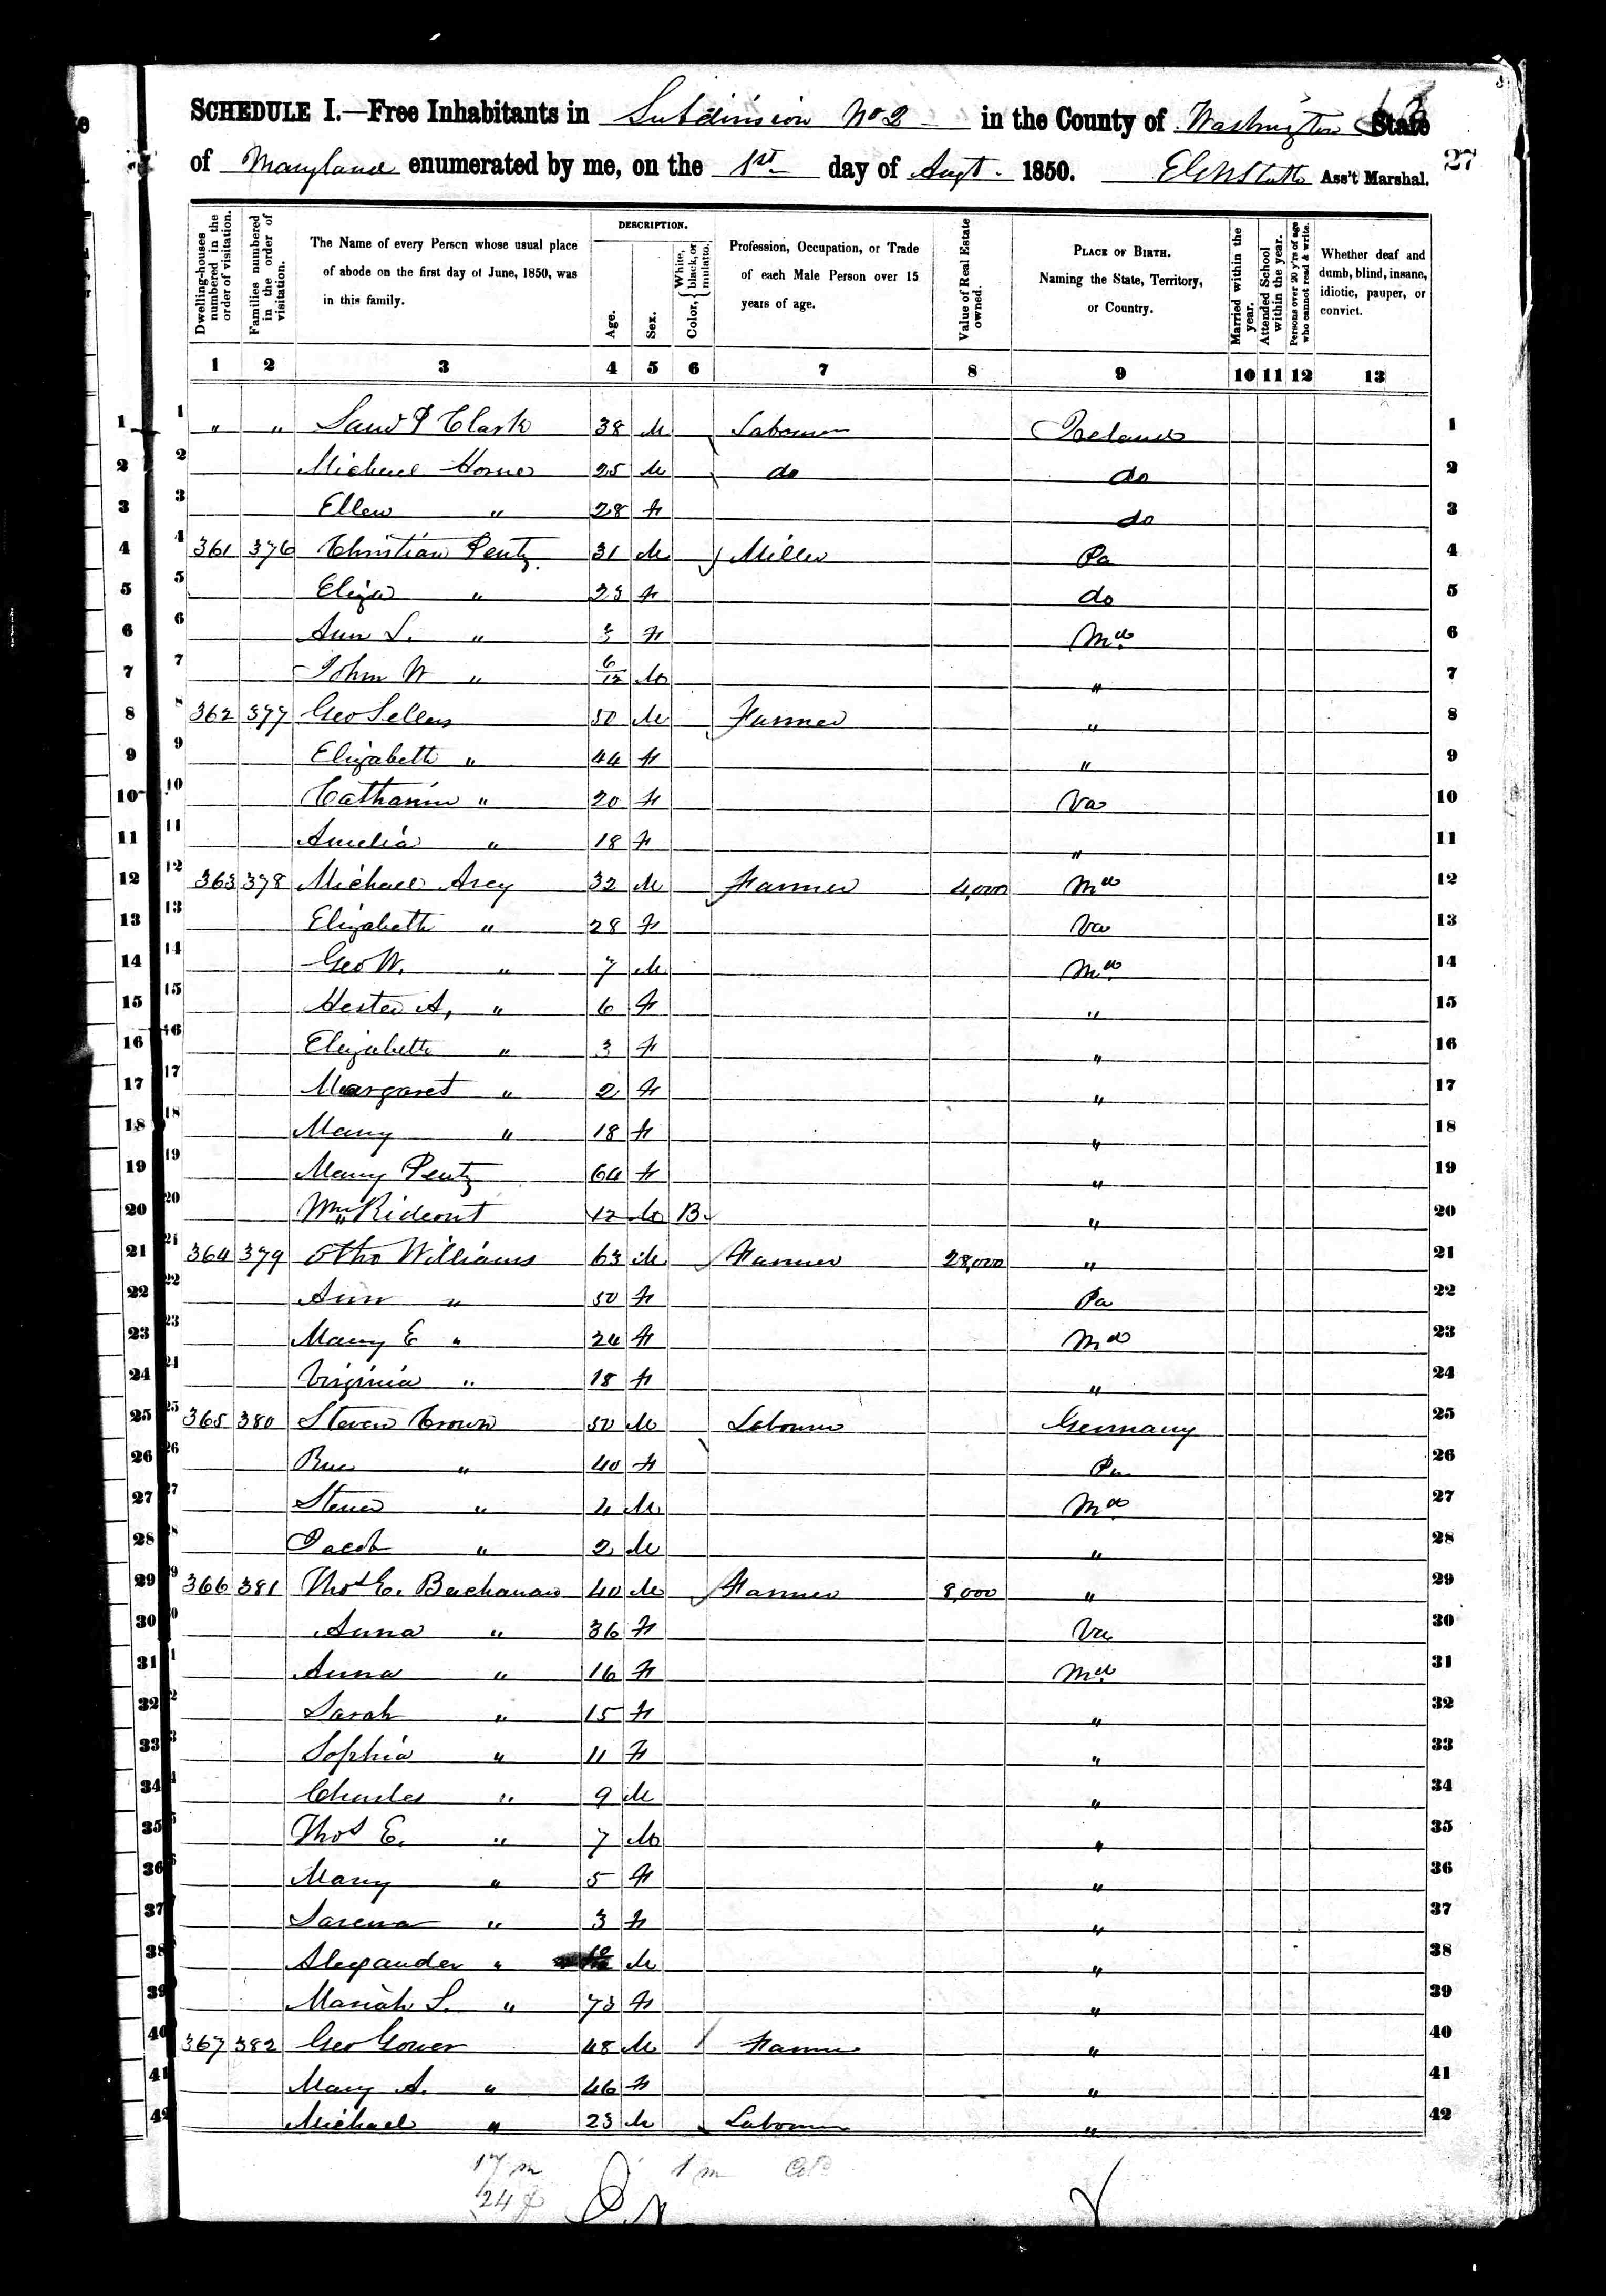 SCHEDULE I.—Free Inhabitants in Subdivision No 2 in the County of Washington State
of Maryland enumerated by me, on the 1st day of Augt. 1850. Ass't Marshal. 27
Dwelling-houses numbered in the order of visitation.
Families numbered in the order of visitation.
The Name of every Person whose usual place of abode on the first day of June, 1850, was in this family.
DESCRIPTION.
Age.
Sex.
Color, { White, black, or mulatto.
Profession, Occupation, or Trade of each Male Person over 15 years of age.
Value of Real Estate owned.
PLACE OF BIRTH. Naming the State, Territory, or Country.
Married within the year.
Attended School within the year.
Persons over 20 y'rs of age who cannot read & write.
Whether deaf and dumb, blind, insane, idiotic, pauper, or convict.
1 2 3 4 5 6 7 8 9 10 11 12 13
1 " " Clark 38 M Labourer Ireland 1
2 Michael 25 M do do 2
3 Ellen " 28 F do 3
4 361 376 Christian Pentz 31 M Miller Pa 4
5 Eliza " 23 F do 5
6 Ann L. " 3 F Md 6
7 John W " 6/12 M " 7
8 362 377 Geo Sellers 50 M Farmer " 8
9 Elizabeth " 44 F " 9
10 Catharin " 20 F Va 10
11 Amelia " 18 F " 11
12 363 378 Michael Arey 32 M Farmer 4,000 Md 12
13 Elizabeth " 28 F Va 13
14 Geo W. " 7 M Md 14
15 Hester A, " 6 F " 15
16 Elizabeth " 3 F " 16
17 Margaret " 2 F " 17
18 Mary " 18 F " 18
19 Mary Pentz 64 F " 19
20 Wm Rideout 12 M B. " 20
21 364 379 Otho Williams 63 M Farmer 28,000 " 21
22 Ann " 50 F Pa 22
23 Mary E " 24 F Md 23
24 Virginia " 18 F " 24
25 365 380 Steven Crown 50 M Labourer Germany 25
26 " 40 F Pa 26
27 Steven " 4 M Md 27
28 Jacob " 2 M " 28
29 366 381 Thos E. Buchanan 40 M Farmer 8,000 " 29
30 Anna " 36 F Va 30
31 Anna " 16 F Md 31
32 Sarah " 15 F " 32
33 Sophia " 11 F " 33
34 Charles " 9 M " 34
35 Thos E. " 7 M " 35
36 Mary " 5 F " 36
37 " 3 F " 37
38 Alexander " M " 38
39 Mariah S. " 73 F " 39
40 367 382 Geo Gower 48 M Farmer " 40
41 Mary A. " 46 F " 41
42 Michael " 23 M Labourer " 42
17 m 1 m
24 f